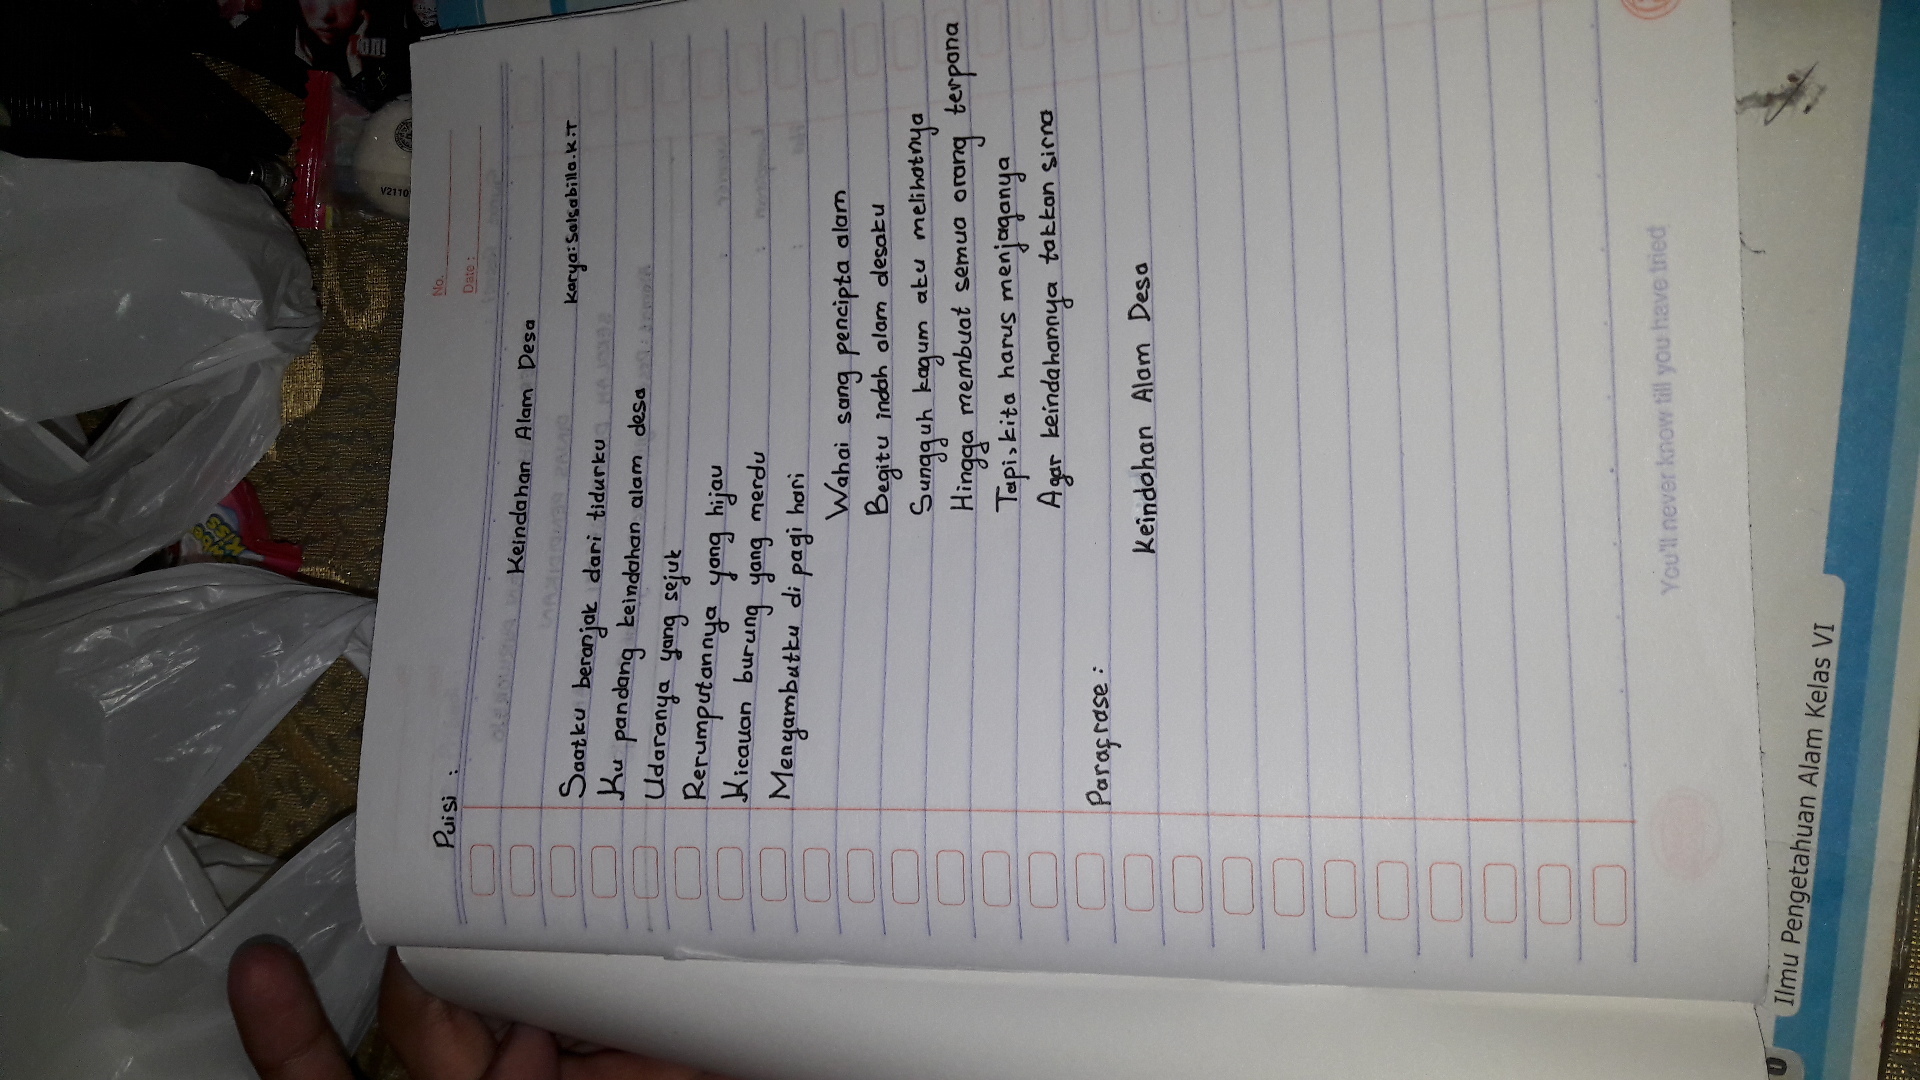 Kiss
V2110
No.
Date :
Puisi :
Keindahan Alam Desa
Karya: Salsabilla.K.T
Saatku beranjak dari tidurku
Ku pandang keindahan alam desa
Udaranya yang sejuk
Rerumputannya yang hijau
Kicauan burung yang merdu
Menyambutku di pagi hari
Wahai sang pencipta alam
Begitu indah alam desaku
Sungguh kagum aku melihatnya
Hingga membuat semua orang terpana
Tapi, kita harus menjaganya
Agar keindahannya takkan sirna
Parafrase :
Keindahan Alam Desa
You'll never know till you have tried
Ilmu Pengetahuan Alam Kelas VI